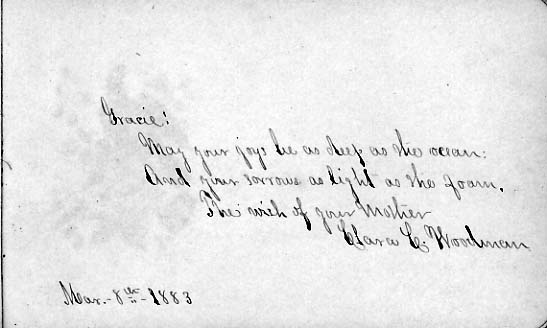 Gracie!
May your joys be as deep as the ocean:
And your sorrows as light as the foam.
The wish of your Mother
Clara C. Woodman
Mar.-8th-1883